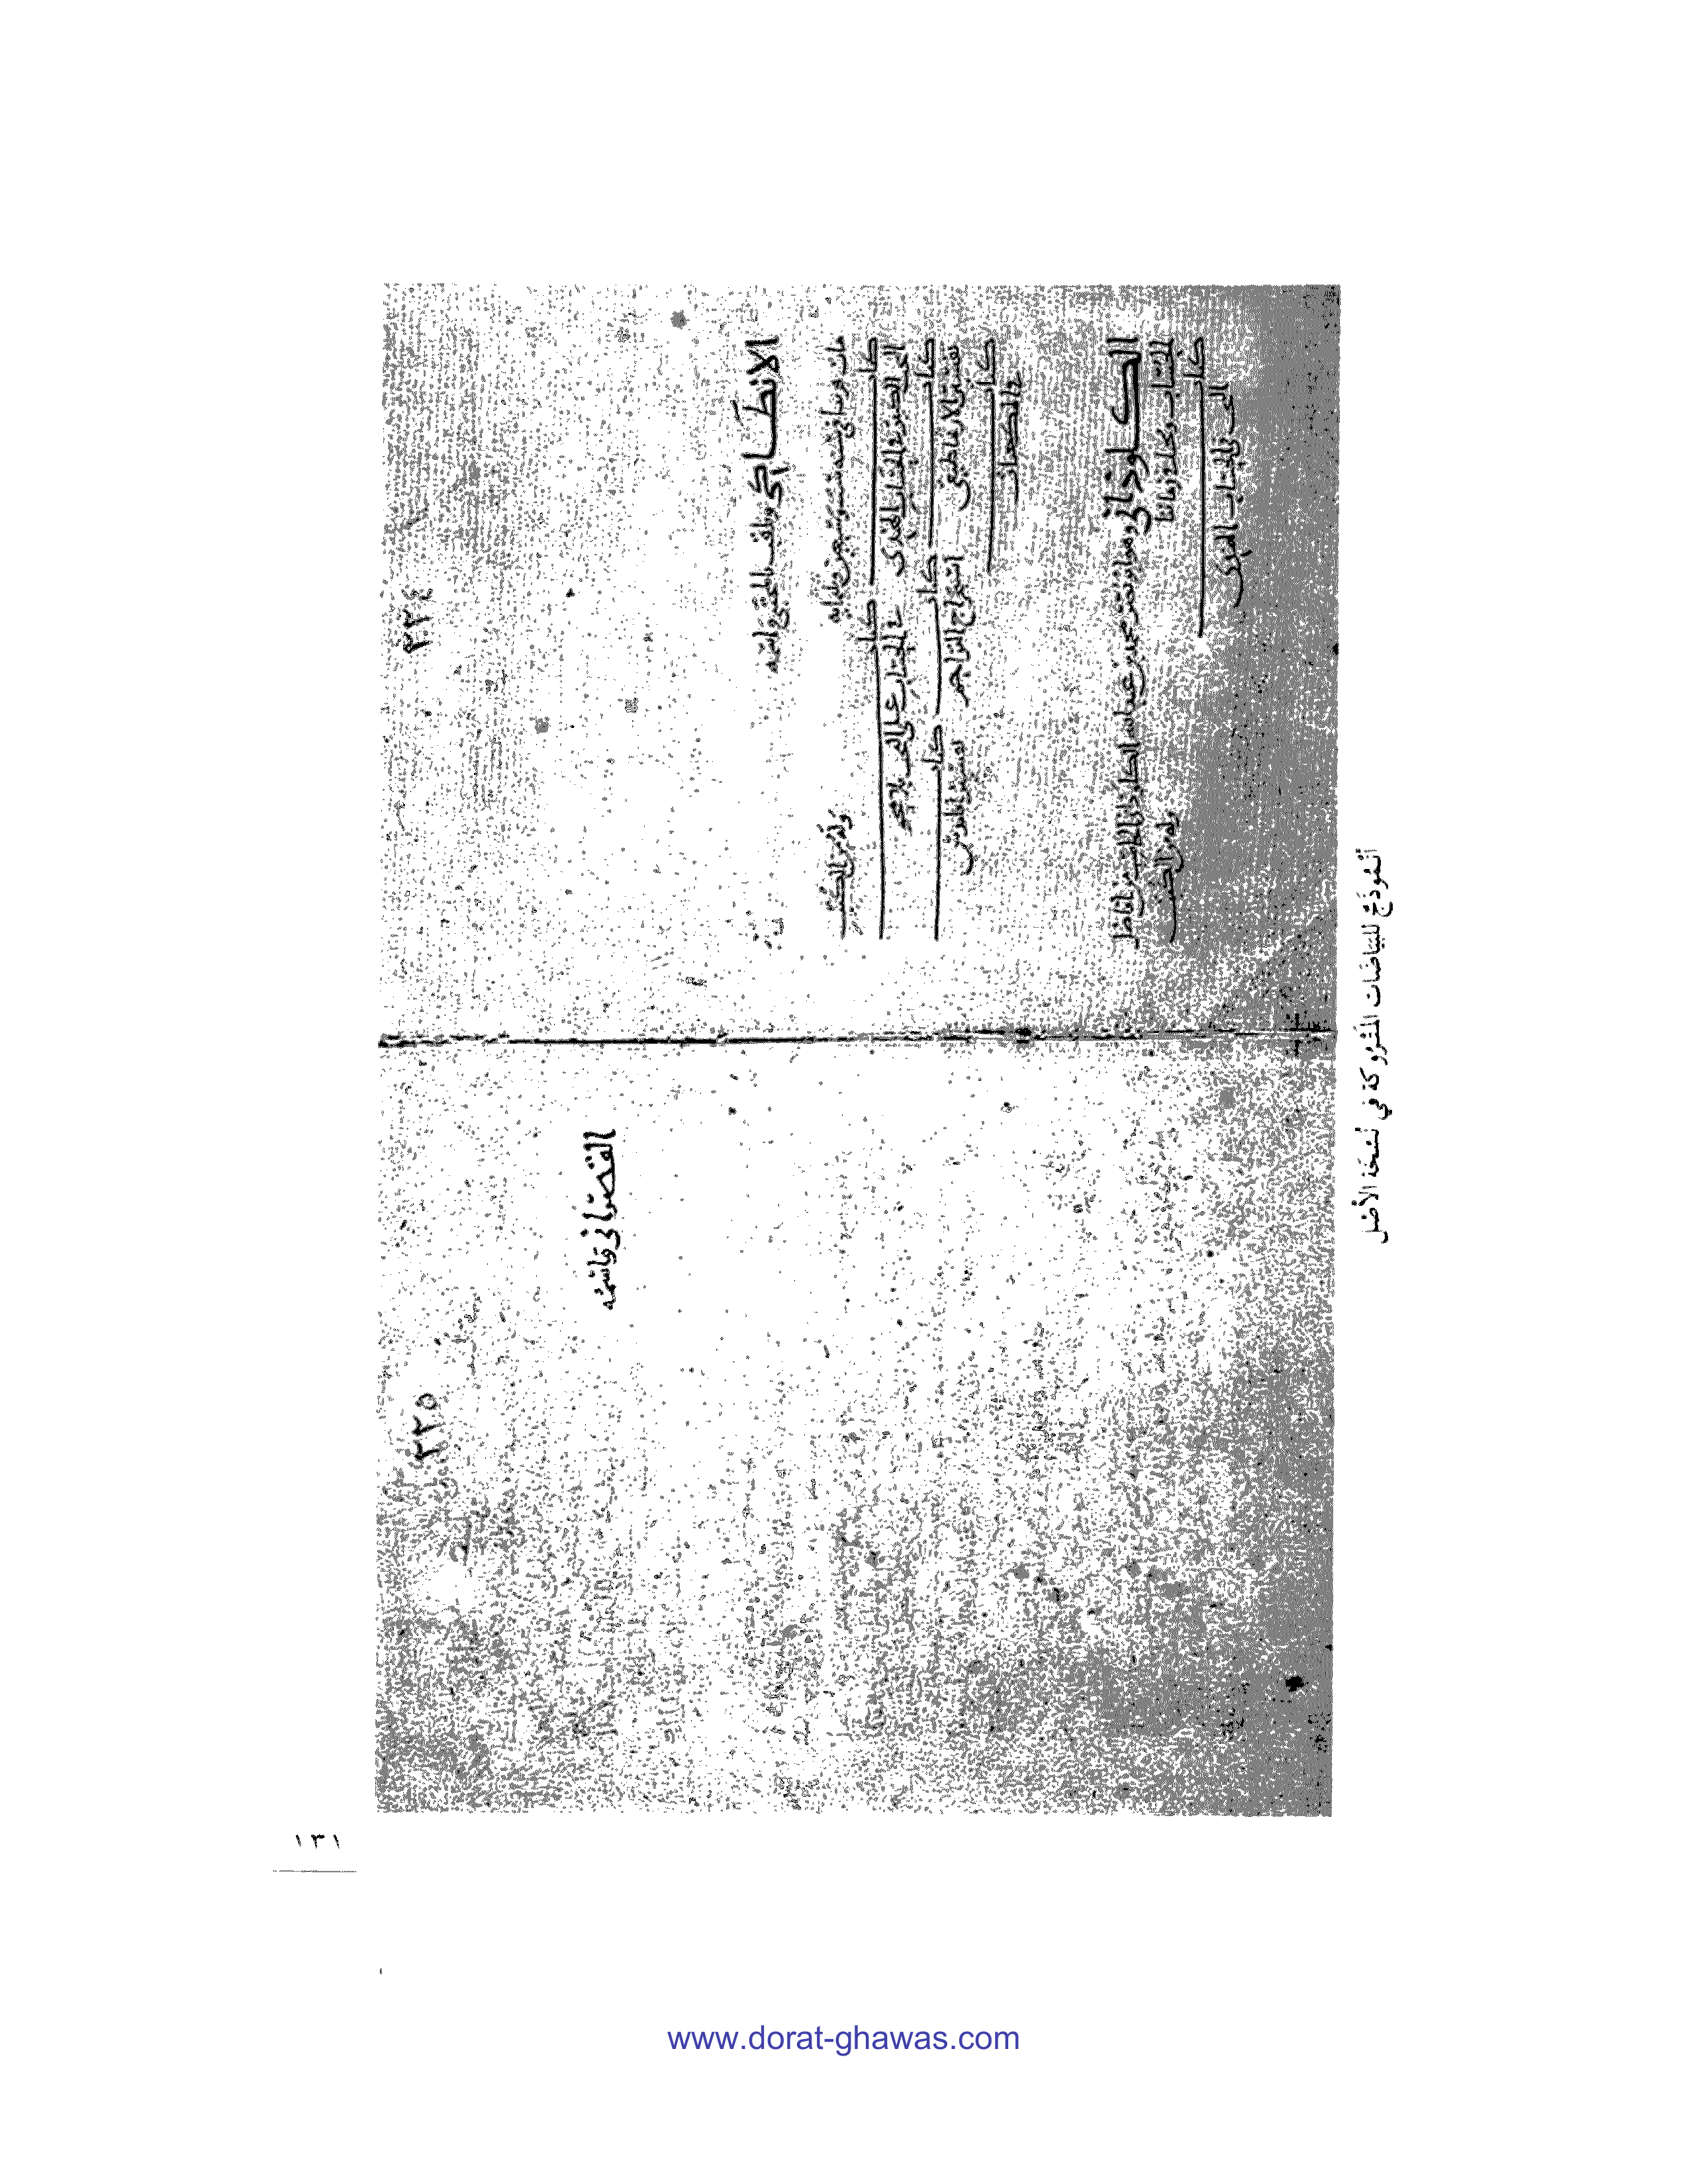 ٢٣٤
الانطاكي ويلقب بالمجتبى واسمه
مات قريبا في سنة ست وسبعين وثلثمايه
وله من الكتب
كتاب
التخت الكبير في الحساب الهندي
كتاب
في الحساب على التخت بلا محو
كتاب
تفسير الارثماطيقي
كتاب
استخراج التراجم
كتاب
تفسير اقليدس
كتاب
في المكعبات
الكلوذاني وهو ابو نصر محمد بن عبدالله الكلوذاني الحاسب من افاضل
الحساب ويحيا في زماننا
وله من الكتب
كتاب
التخت في الحساب الهندي
٢٣٥
القصراني واسمه
أنموذج للبياضات المتروكة في نسخة الأصل
١٣١
www.dorat-ghawas.com